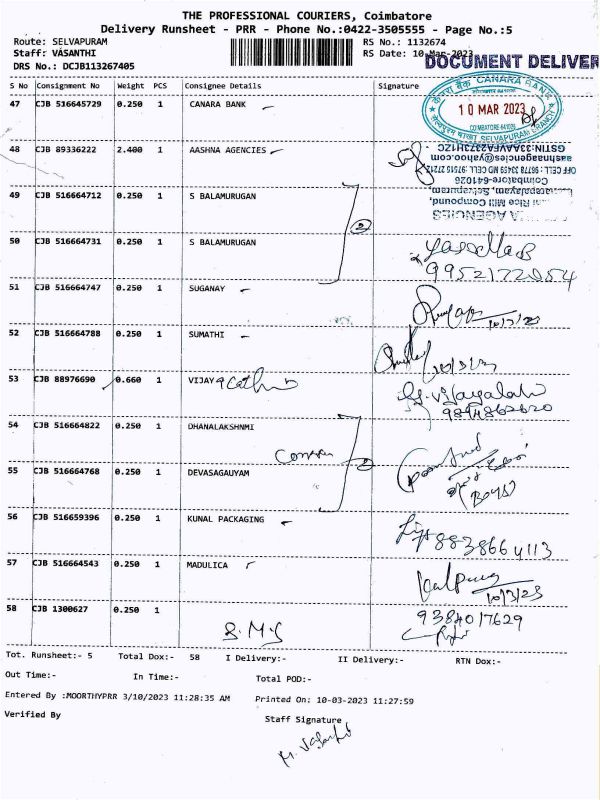 THE PROFESSIONAL COURIERS, Coimbatore
Delivery Runsheet - PRR - Phone No.:0422-3505555 - Page No.:5
Route: SELVAPURAM RS No.: 1132674
Staff: VASANTHI RS Date: 10-Mar-2023
DOCUMENT DELIVER
DRS No.: DCJB113267405
S No Consignment No Weight PCS Consignee Details Signature
47 CJB 516645729 0.250 1 CANARA BANK
केनरा बैंक CANARA BANK
10 MAR 2023
COIMBATORE-641026
SELVAPURAM BRANCH
48 CJB 89336222 2.400 1 AASHNA AGENCIES
GSTIN:33AAVFA2373H1ZC
aashnaagencies@yahoo.com
OFF CELL : 98778 33459 MD CELL :97516 27212
Coimbatore-641026
Selvapuram,
Rice Mill Compound,
A AGENCIES
49 CJB 516664712 0.250 1 S BALAMURUGAN
2
50 CJB 516664731 0.250 1 S BALAMURUGAN
9952172054
51 CJB 516664747 0.250 1 SUGANAY
10/3/23
52 CJB 516664788 0.250 1 SUMATHI
10/3/23
53 CJB 88976690 0.660 1 VIJAY
9894862620
54 CJB 516664822 0.250 1 DHANALAKSHNMI
2
55 CJB 516664768 0.250 1 DEVASAGAUYAM
56 CJB 516659396 0.250 1 KUNAL PACKAGING
8838664113
57 CJB 516664543 0.250 1 MADULICA
10/3/23
58 CJB 1300627 0.250 1
S.M.S
9384017629
Tot. Runsheet:- 5 Total Dox:- 58 I Delivery:- II Delivery:- RTN Dox:-
Out Time:- In Time:- Total POD:-
Entered By :MOORTHYPRR 3/10/2023 11:28:35 AM Printed On: 10-03-2023 11:27:59
Verified By Staff Signature